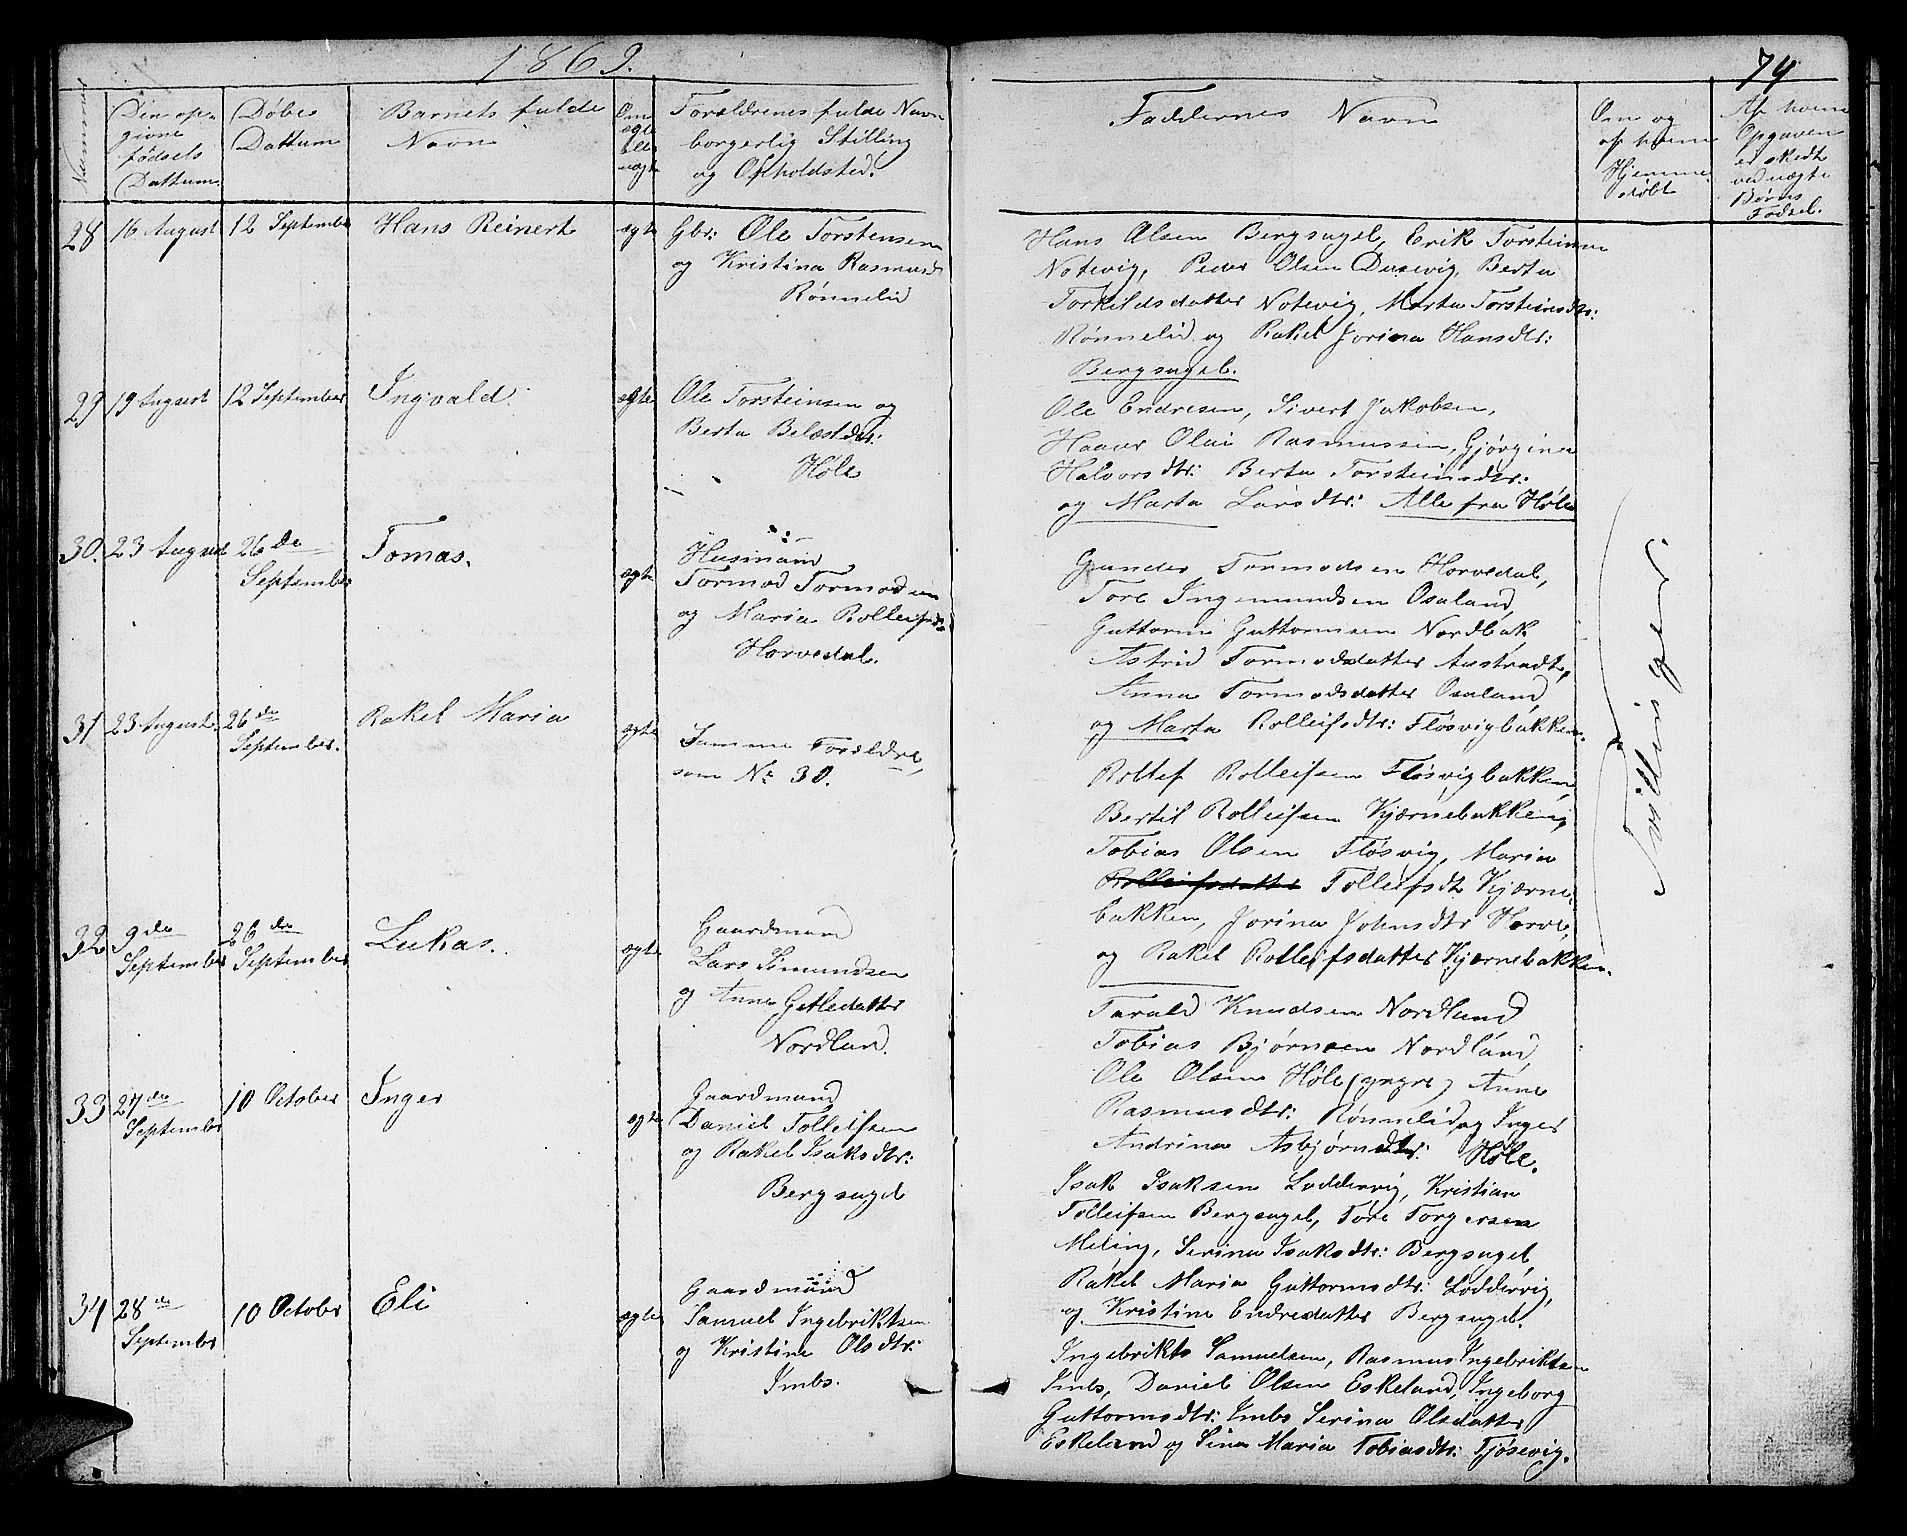 1869.
74
Nummer
Den op-
givne
fødsels
Dattum.
Døbe
Dattum
Barnets fulde
Navn
Om
ægte
ell.
uægte
Forældrenes fulde Navn
borgerlig Stilling
og Opholdsted.
Faddernes Navn
Om og
af hvem
Hjemme-
døbt
Af hvem
Opgaven
er skedt
ved uægte
Børns
Fødsel.
28 16 August 12 September Hans Reinert ægte
Gbr: Ole Torstensen
og Kristina Rasmusd
Rønnelid
Hans Olsen Bergsagel, Erik Torsteinsen
Notevig, Peder Olsen Dusevig, Berta
Torkildsdatter Notevig, Marta Torsteinsdtr:
Rønnelid og Rakel Jorina Hansdtr:
Bergsagel.
29 19 August 12 September Ingvald. ægte
Ole Torsteinsen og
Berta Belæstdtr:
Høle
Ole Endresen, Sivert Jakobsen,
Haaver Olai Rasmussen, Gjørgine
Halvorsdtr: Berta Torsteinsdtr:
og Marta Larsdtr: Alle fra Høle
30. 23 August 26 de
September
Tomas. ægte
Husmand
Tormod Tormodsen
og Maria Rolleifsd.
Horvedal.
Gunder Tormodsen Horvedal,
Tore Ingemundsen Osaland,
Guttorm Guttormsen Nordbak
Astrid Tormodsdatter Austradt,
Anna Tormodsdatter Osaland,
og Marta Rolleifsdtr: Fløsvigbakken.
31 23 August. 26 de
September.
Rakel Maria ægte
Samme Forældre,
som No 30.
Rollef Rolleifsen Fløsvigbakken,
Bertil Rolleifsen Kjærnebakken,
Tobias Olsen Fløsvig, Maria
Rolleifsdatter Tolleifsdt Kjærne-
bakken, Jorina Johnsdtr Horve,
og Rakel Rolleifsdatter Kjærnebakken.
Tvillinger.
32 9 de
September
26 de
September
Lukas. ægte
Gaardmand
Lars Simundsen
og Anne Gitledatter
Nordlan.
Tarald Knudsen Nordland
Tobias Bjørnsen Nordland,
Ole Olsen Høle (yngre) Anne
Rasmusdtr: Rønnelid og Inger
Andrina Asbjørnsdtr: Høle.
33 27 de
September
10 October Inger ægte
Gaardmand
Daniel Tolleifsen
og Rakel Isaksdtr:
Bergsagel
Isak Isaksen Loddervig, Kristian
Tolleifsen Bergsagel, Tore Torgersen
Meling, Serina Isaksdtr: Bergsagel,
Rakel Maria Guttormsdtr: Loddervig,
og Kristine Endresdatter Bergsagel.
34 28 de
September
10 October Eli ægte
Gaardmand
Samuel Ingebriktsen
og Kristine Olsdtr:
Imbs.
Ingebrikts Samuelsen, Rasmus Ingebriktsen
Imbs, Daniel Olsen Eskeland, Ingeborg
Guttormsdtr: Imbs Serina Olsdatter
Eskeland og Sina Maria Tobiasdtr: Tjøsevig.